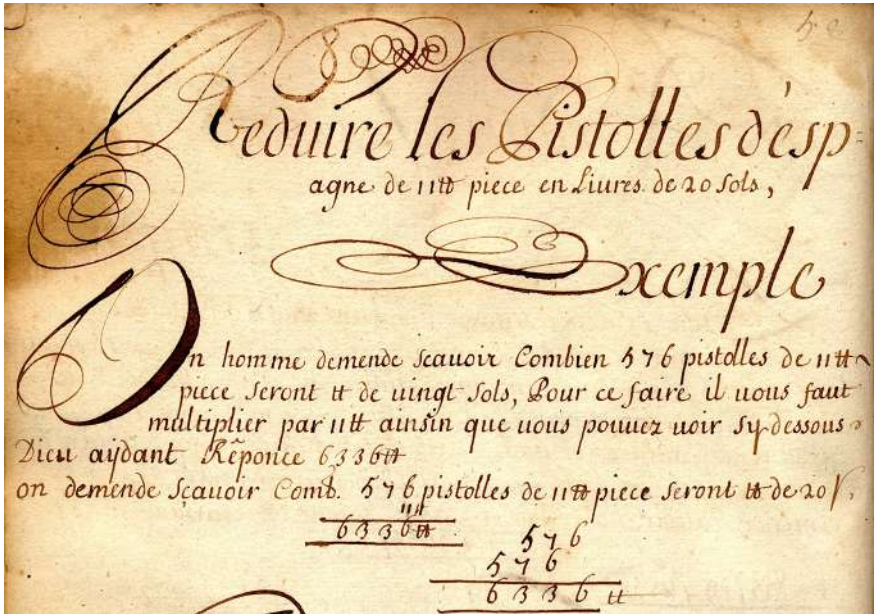 Reduire les Pistolles d'esp=
agne de 11tt piece en Liures de 20 sols,
Exemple
Un homme demende scauoir Combien 576 pistolles de 11tt
piece seront tt de uingt sols, Pour ce faire il uous faut
multiplier par 11tt ainsin que uous pouuez uoir sy dessous
Dieu aÿdant Rêponce 6336tt
on demende scauoir Comb. 576 pistolles de 11tt piece seront tt de 20 s.
11tt
6336tt
576
576
6336 tt